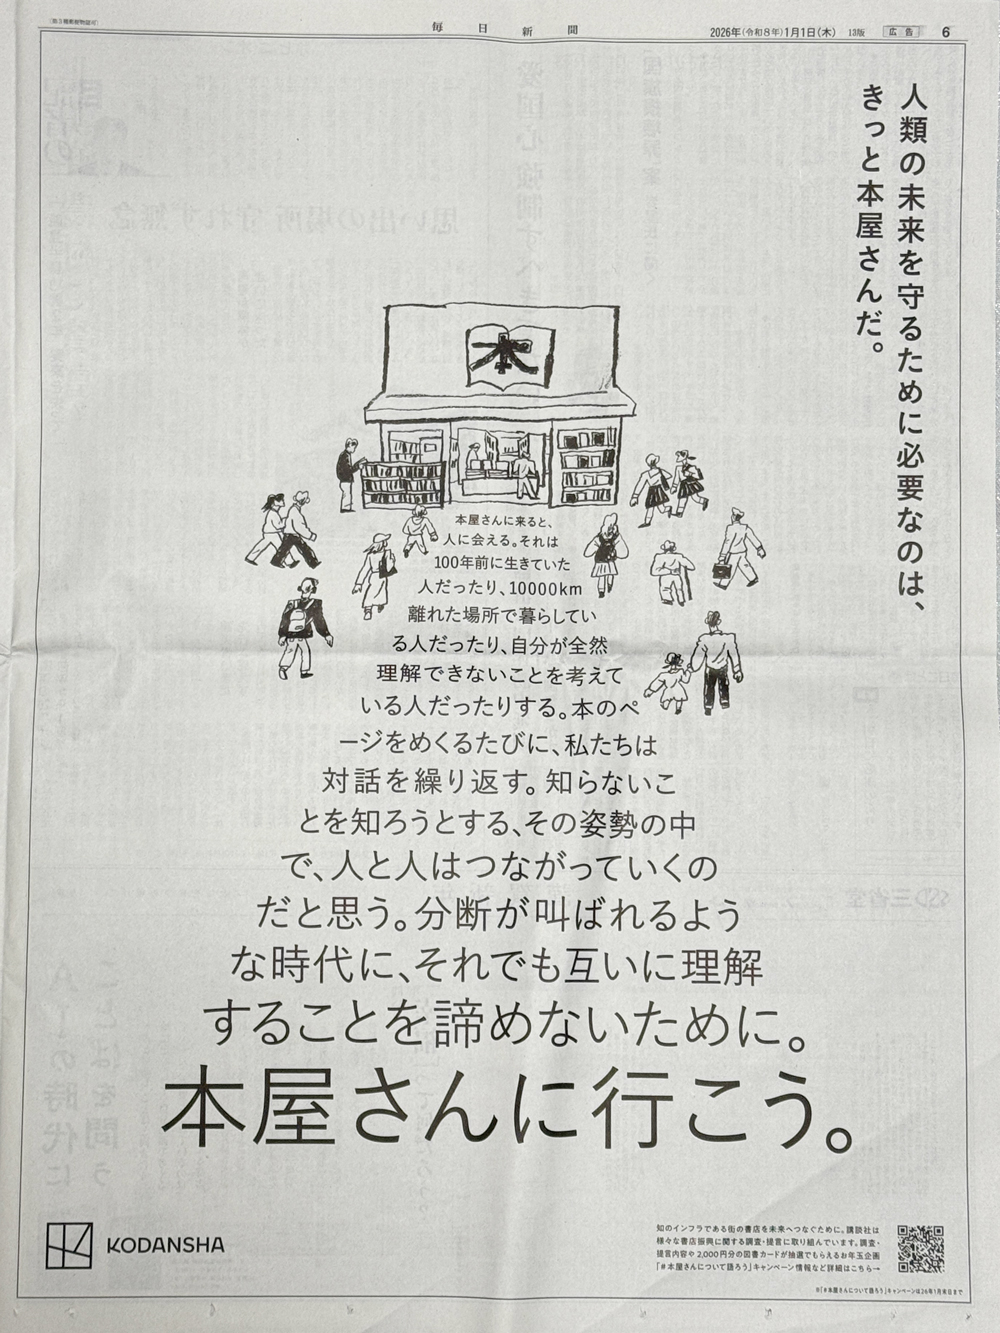 毎日新聞
2026年(令和8年)1月1日(木)
13版
広告
6
人類の未来を守るために必要なのは、
きっと本屋さんだ。
本
本屋さんに来ると、
人に会える。それは
100年前に生きていた
人だったり、10000km
離れた場所で暮らしてい
る人だったり、自分が全然
理解できないことを考えて
いる人だったりする。本のペ
ージをめくるたびに、私たちは
対話を繰り返す。知らないこ
とを知ろうとする、その姿勢の中
で、人と人はつながっていくの
だと思う。分断が叫ばれるよう
な時代に、それでも互いに理解
することを諦めないために。
本屋さんに行こう。
KODANSHA
知のインフラである街の書店を未来へつなぐために。講談社は
様々な書店振興に関する調査・提言に取り組んでいます。調査・
提言内容や2,000円分の図書カードが抽選でもらえるお年玉企画
「#本屋さんについて語ろう」キャンペーン情報など詳細はこちら→
※「#本屋さんについて語ろう」キャンペーンは26年1月末日まで